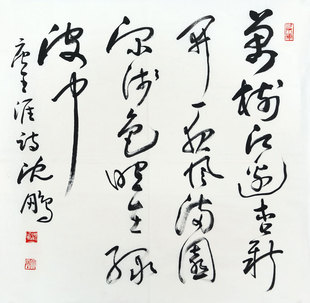 萬樹江邊杏新
開一夜風滿園
深淺色照在綠
波中
唐王涯詩沈鵬